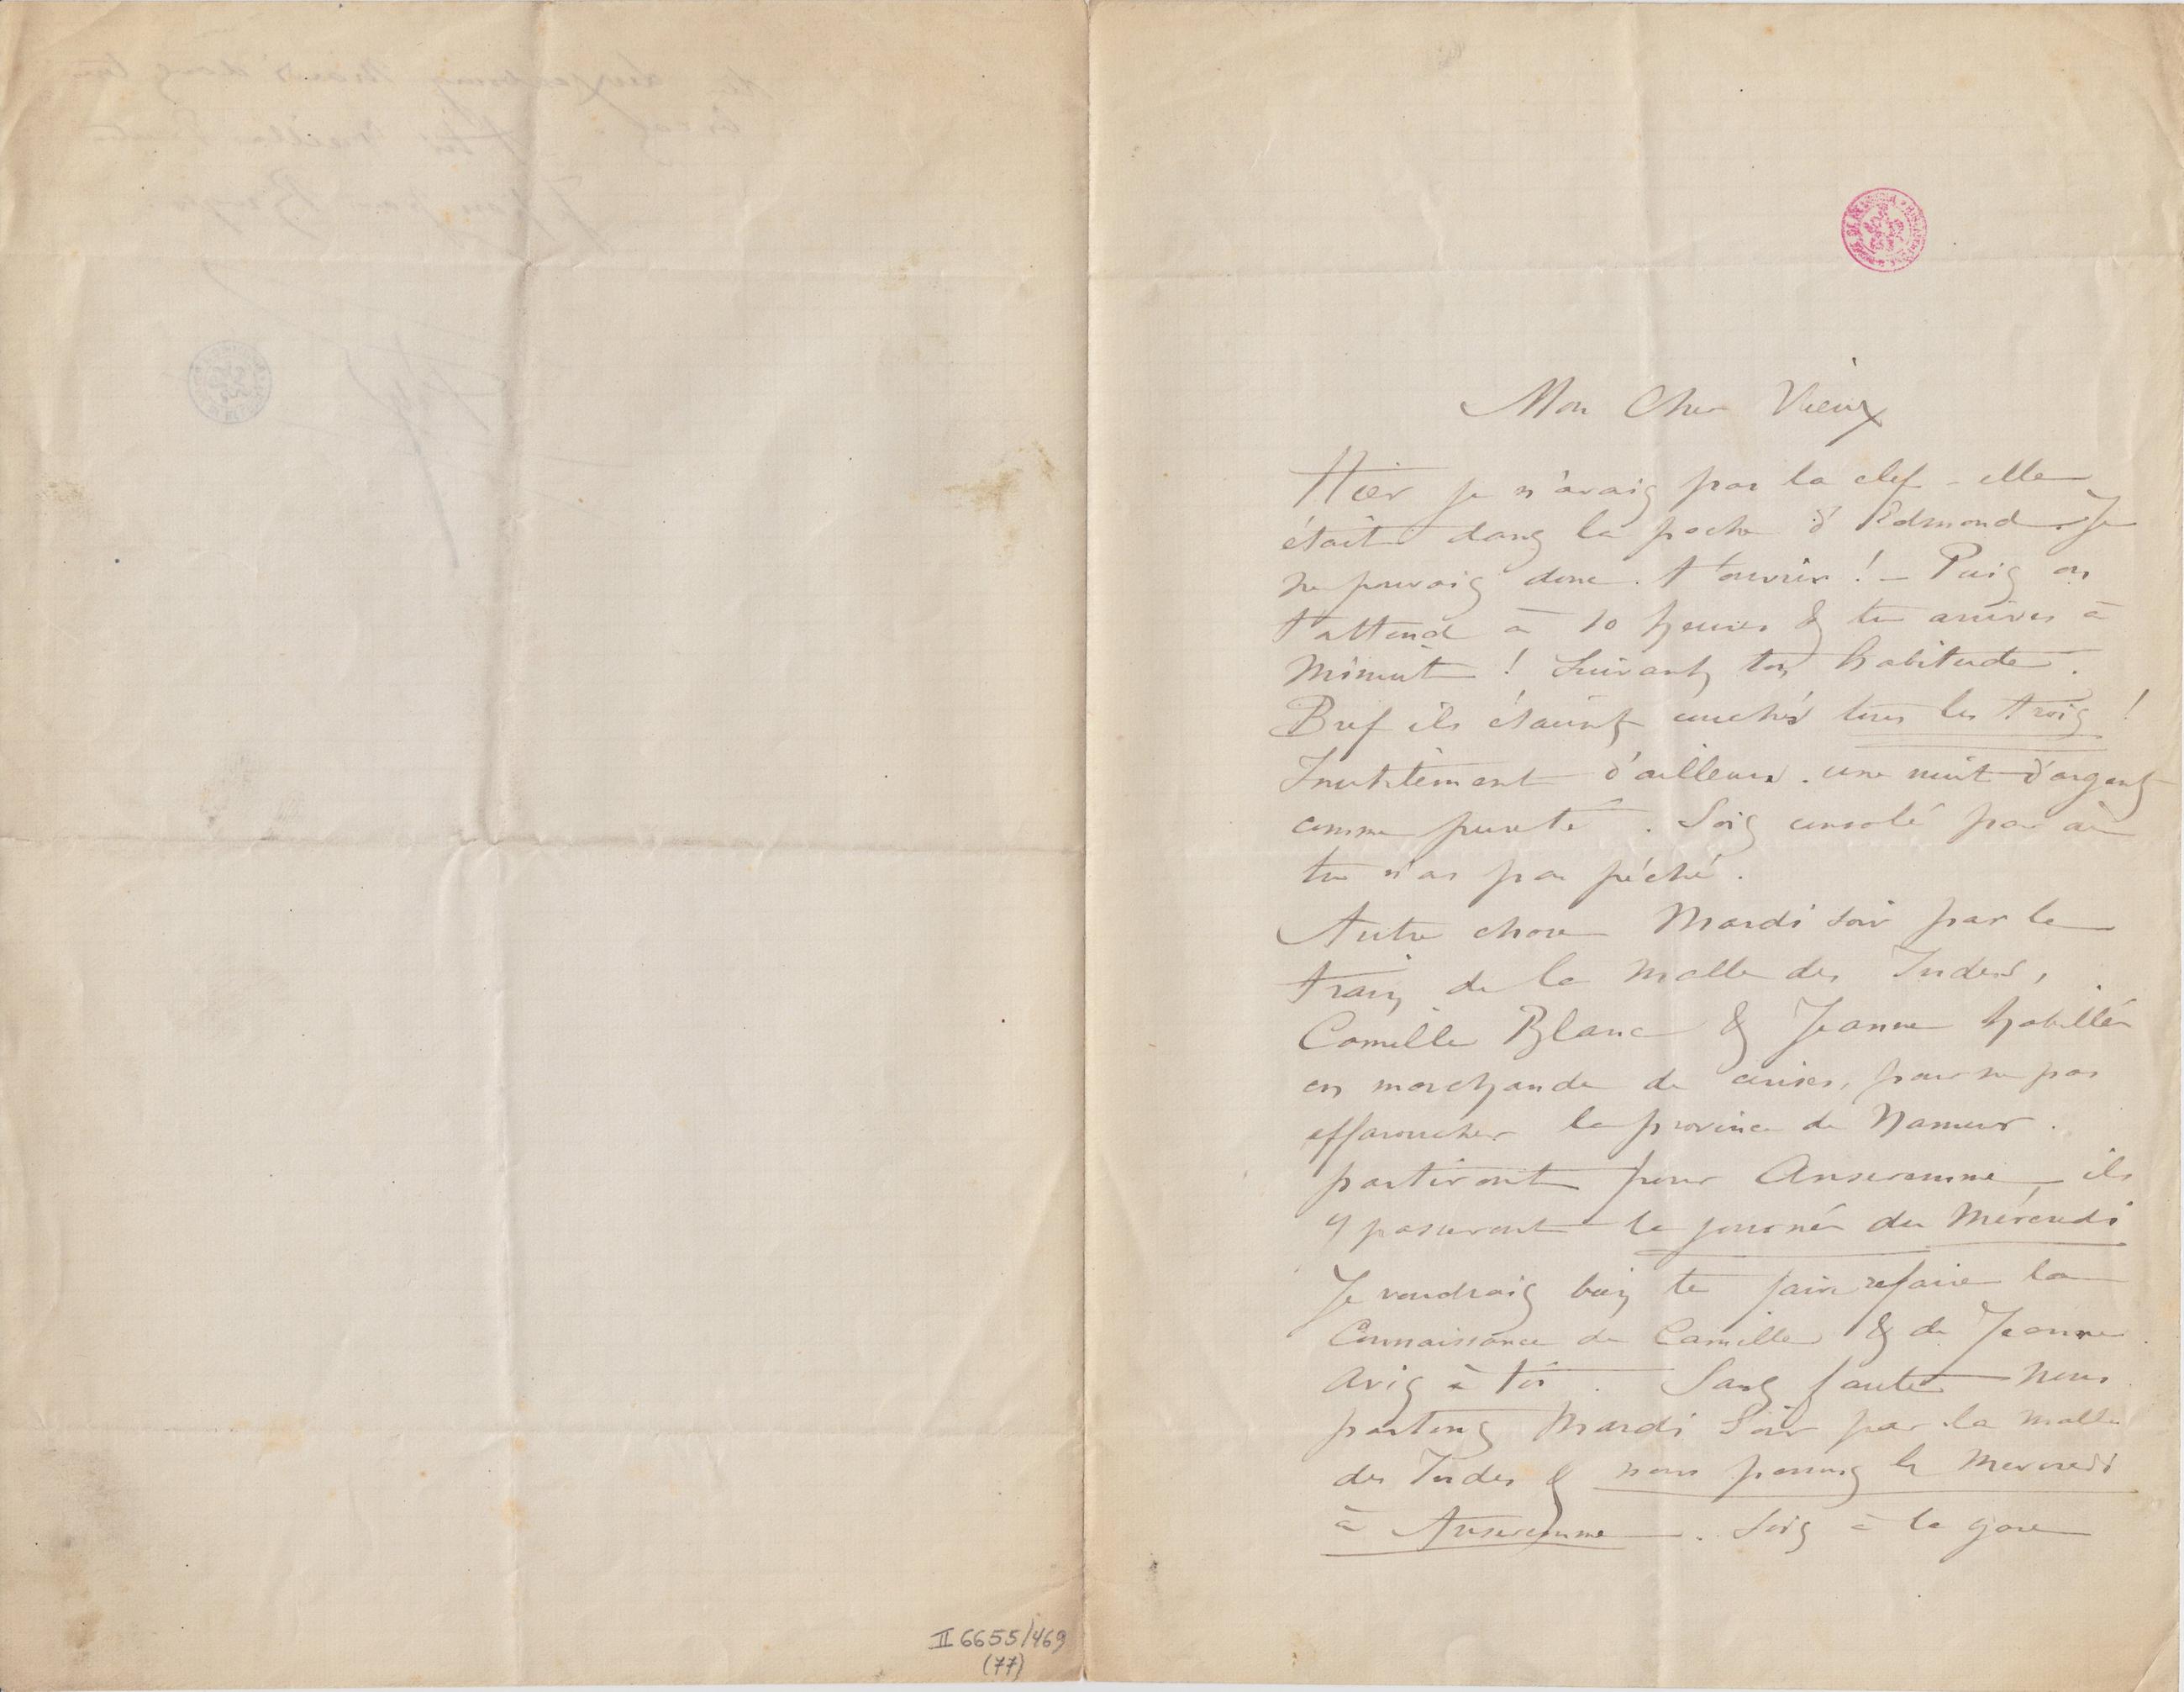 Mon Cher Vieux
Hier je n'avais pas la clef – elle
était dans la poche d'Edmond. Je
ne pouvais donc t'ouvrir ! – Puis on
t'attend à 10 heures & tu arrives à
Minuit ! Suivant ton habitude.
Bref ils étaient couchés tous les trois !
Inutilement d'ailleurs. une nuit d'argent
comme pureté. Sois consolé par où
tu n'as pas péché.
Autre chose Mardi soir par le
train de la Malle des Indes,
Camille Blanc & Jeanne habillée
en marchande de cerises, pour ne pas
effaroucher la province de Namur.
partiront pour Anseremme, ils
y passeront la journée du Mercredi
Je voudrais bien te faire refaire la
Connaissance de Camille & de Jeanne
avis à toi. Sans faute nous
partons Mardi Soir par la malle
des Indes & nous passons le Mercredi
à Anseremme. Sois à la gare
II 6655/469
(77)